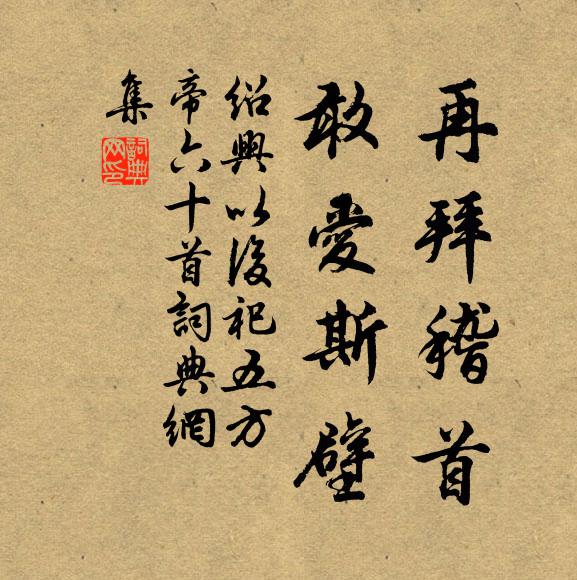 再拜稽首
敢愛斯璧
紹興以後祀五方
帝六十首詞典網
集
詞典网印